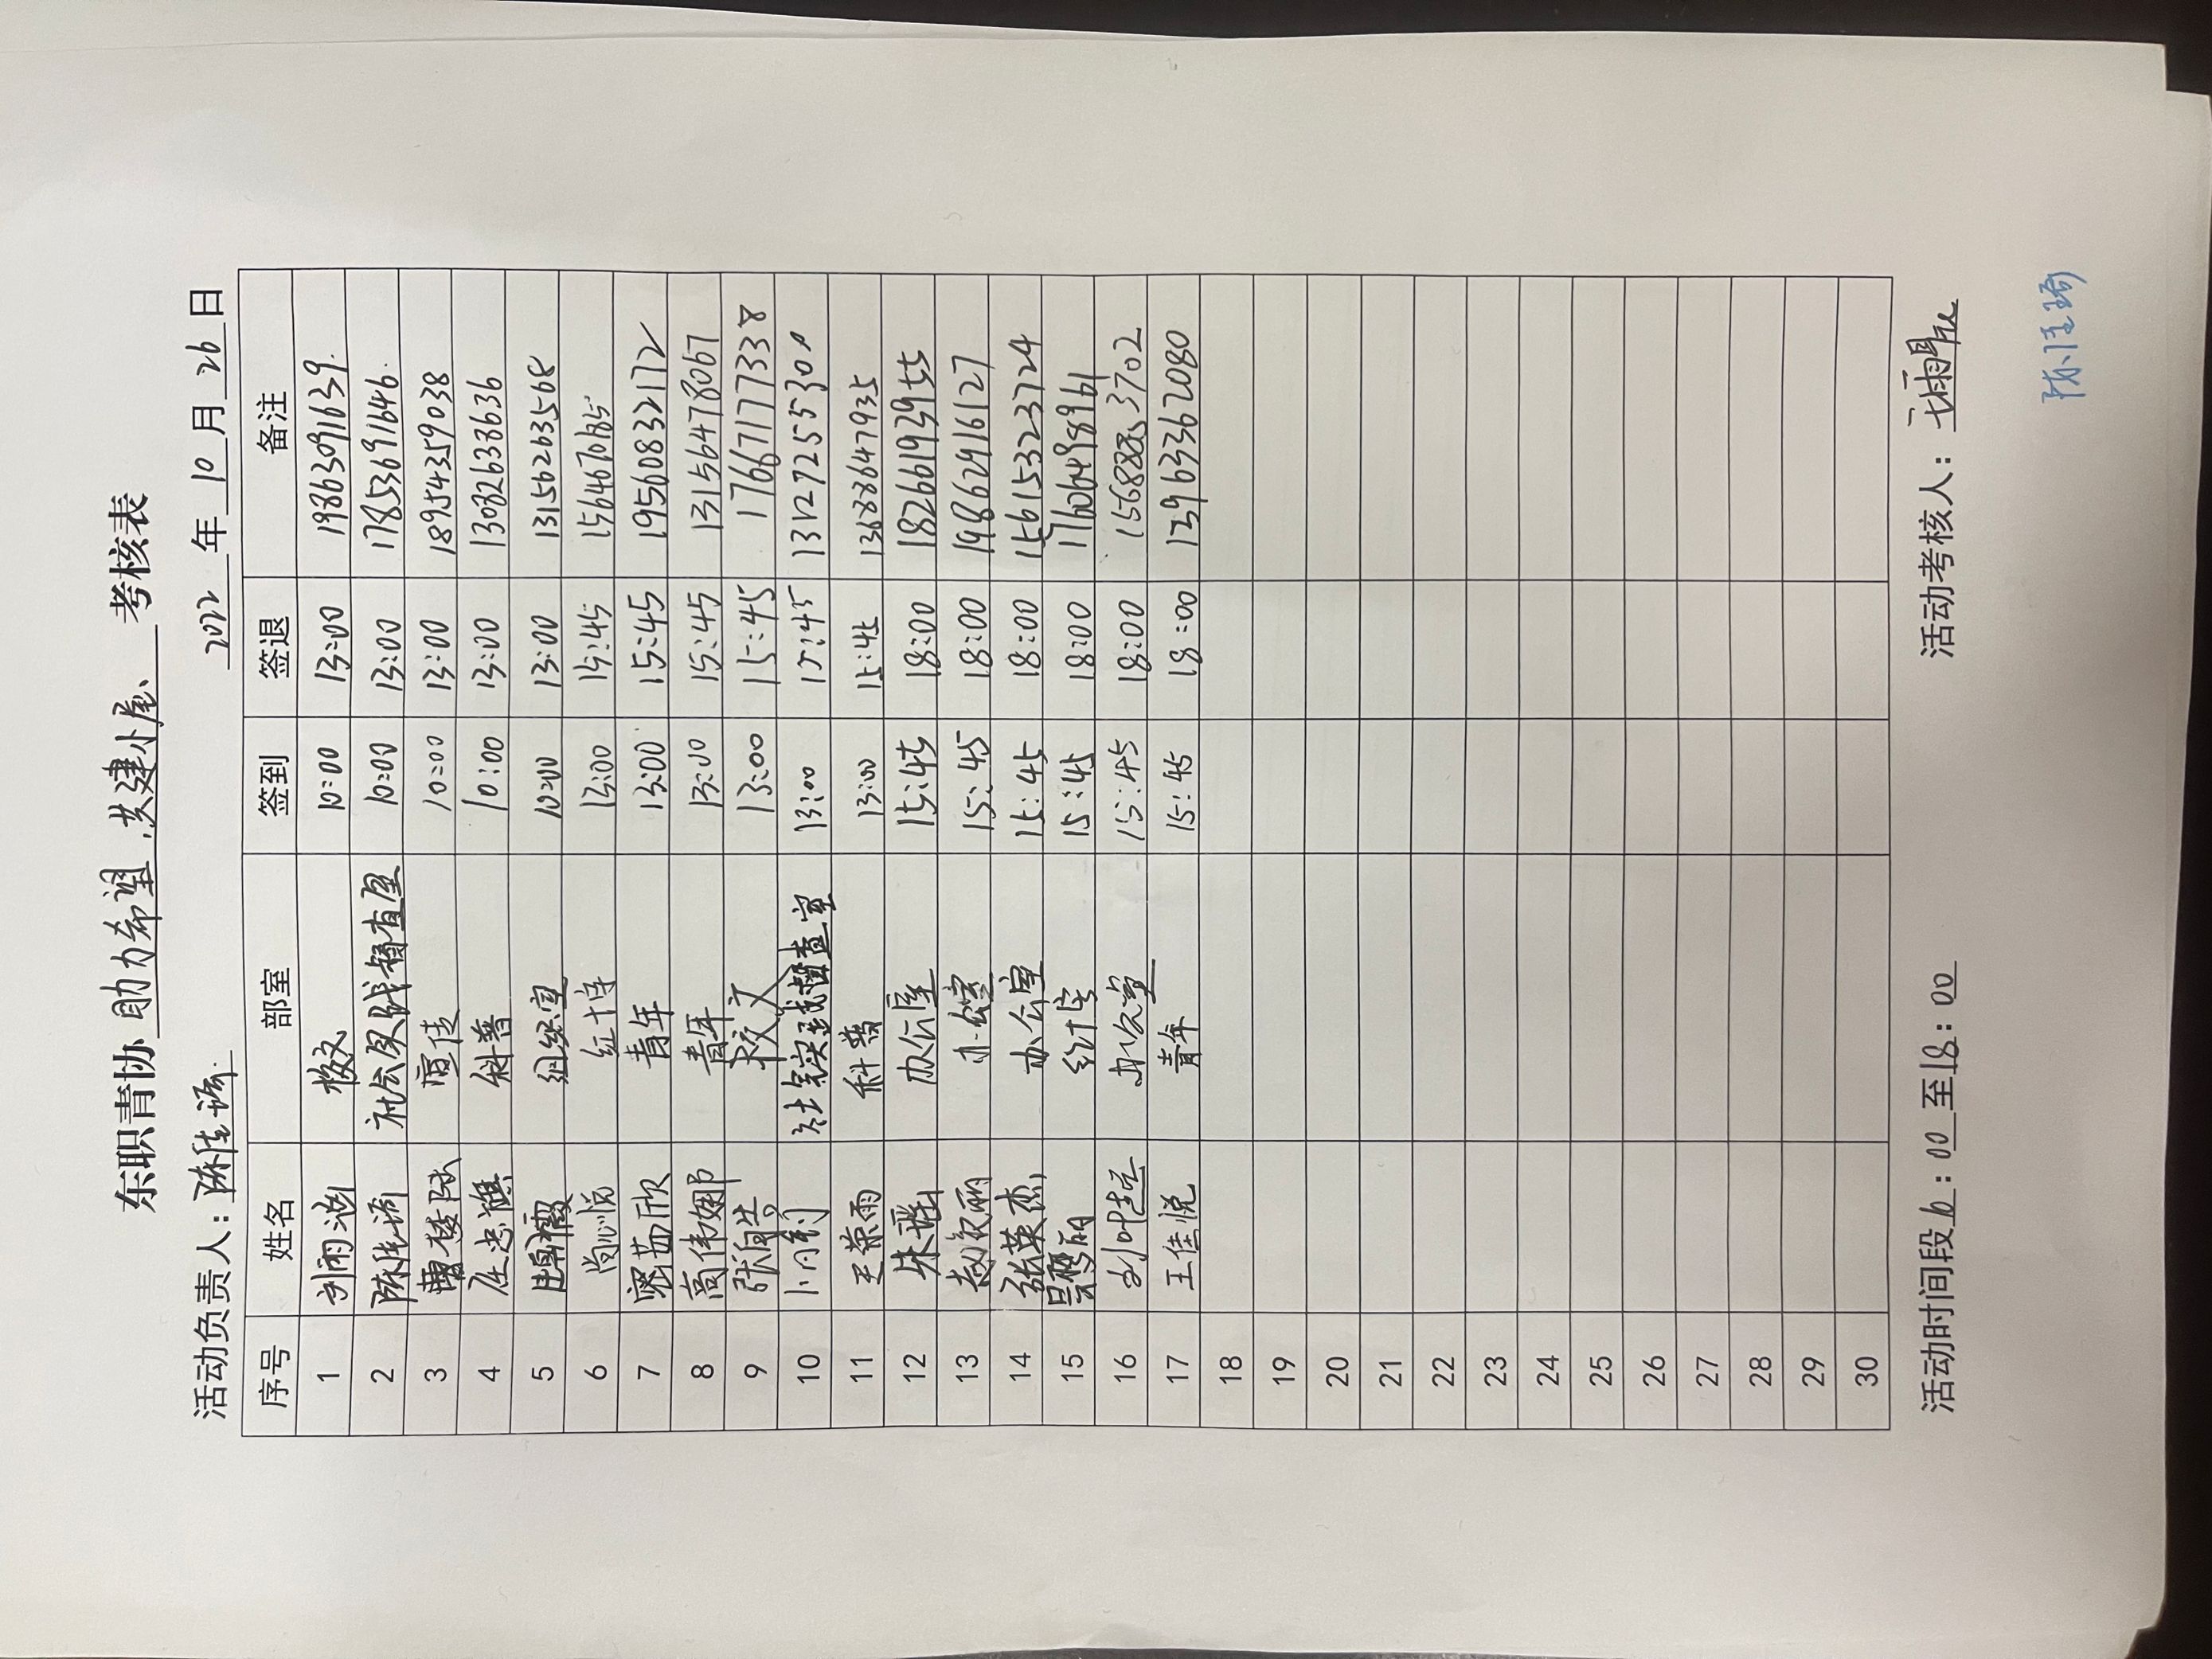 东职青协 助力希望,共建小屋、 考核表
活动负责人: 2022 年 10 月 26 日
序号 姓名 部室 签到 签退 备注
1 刘雨池 校文 10:00 13:00 19863091639.
2 社会实践督查室 10:00 13:00 17853691646.
3 宣传 10:00 13:00 18954359038
4 科普 10:00 13:00 13082638636
5 组织室 10:00 13:00 13156263568
6 尚心悦 红十字 13:00 15:45
7 密茹欣 青年 13:00 15:45 19560832172
8 高伟娜 青年 13:00 15:45 13156478067
9 校文 13:00 15:45 17667177338
10 社会实践督查室 13:00 15:45
11 王荣雨 科普 13:00 15:45 13688647935
12 朱瑶 办公室 15:45 18:00 18266193955
13 赵欣丽 办公室 15:45 18:00 19862916127
14 张英杰 办公室 15:45 18:00 15615323724
15 吴梦丽 红十字 15:45 18:00 17606498961
16 办公室 15:45 18:00
17 王佳悦 青年 15:45 18:00 13963362080
18
19
20
21
22
23
24
25
26
27
28
29
30
活动时间段 10:00 至 18:00 活动考核人: